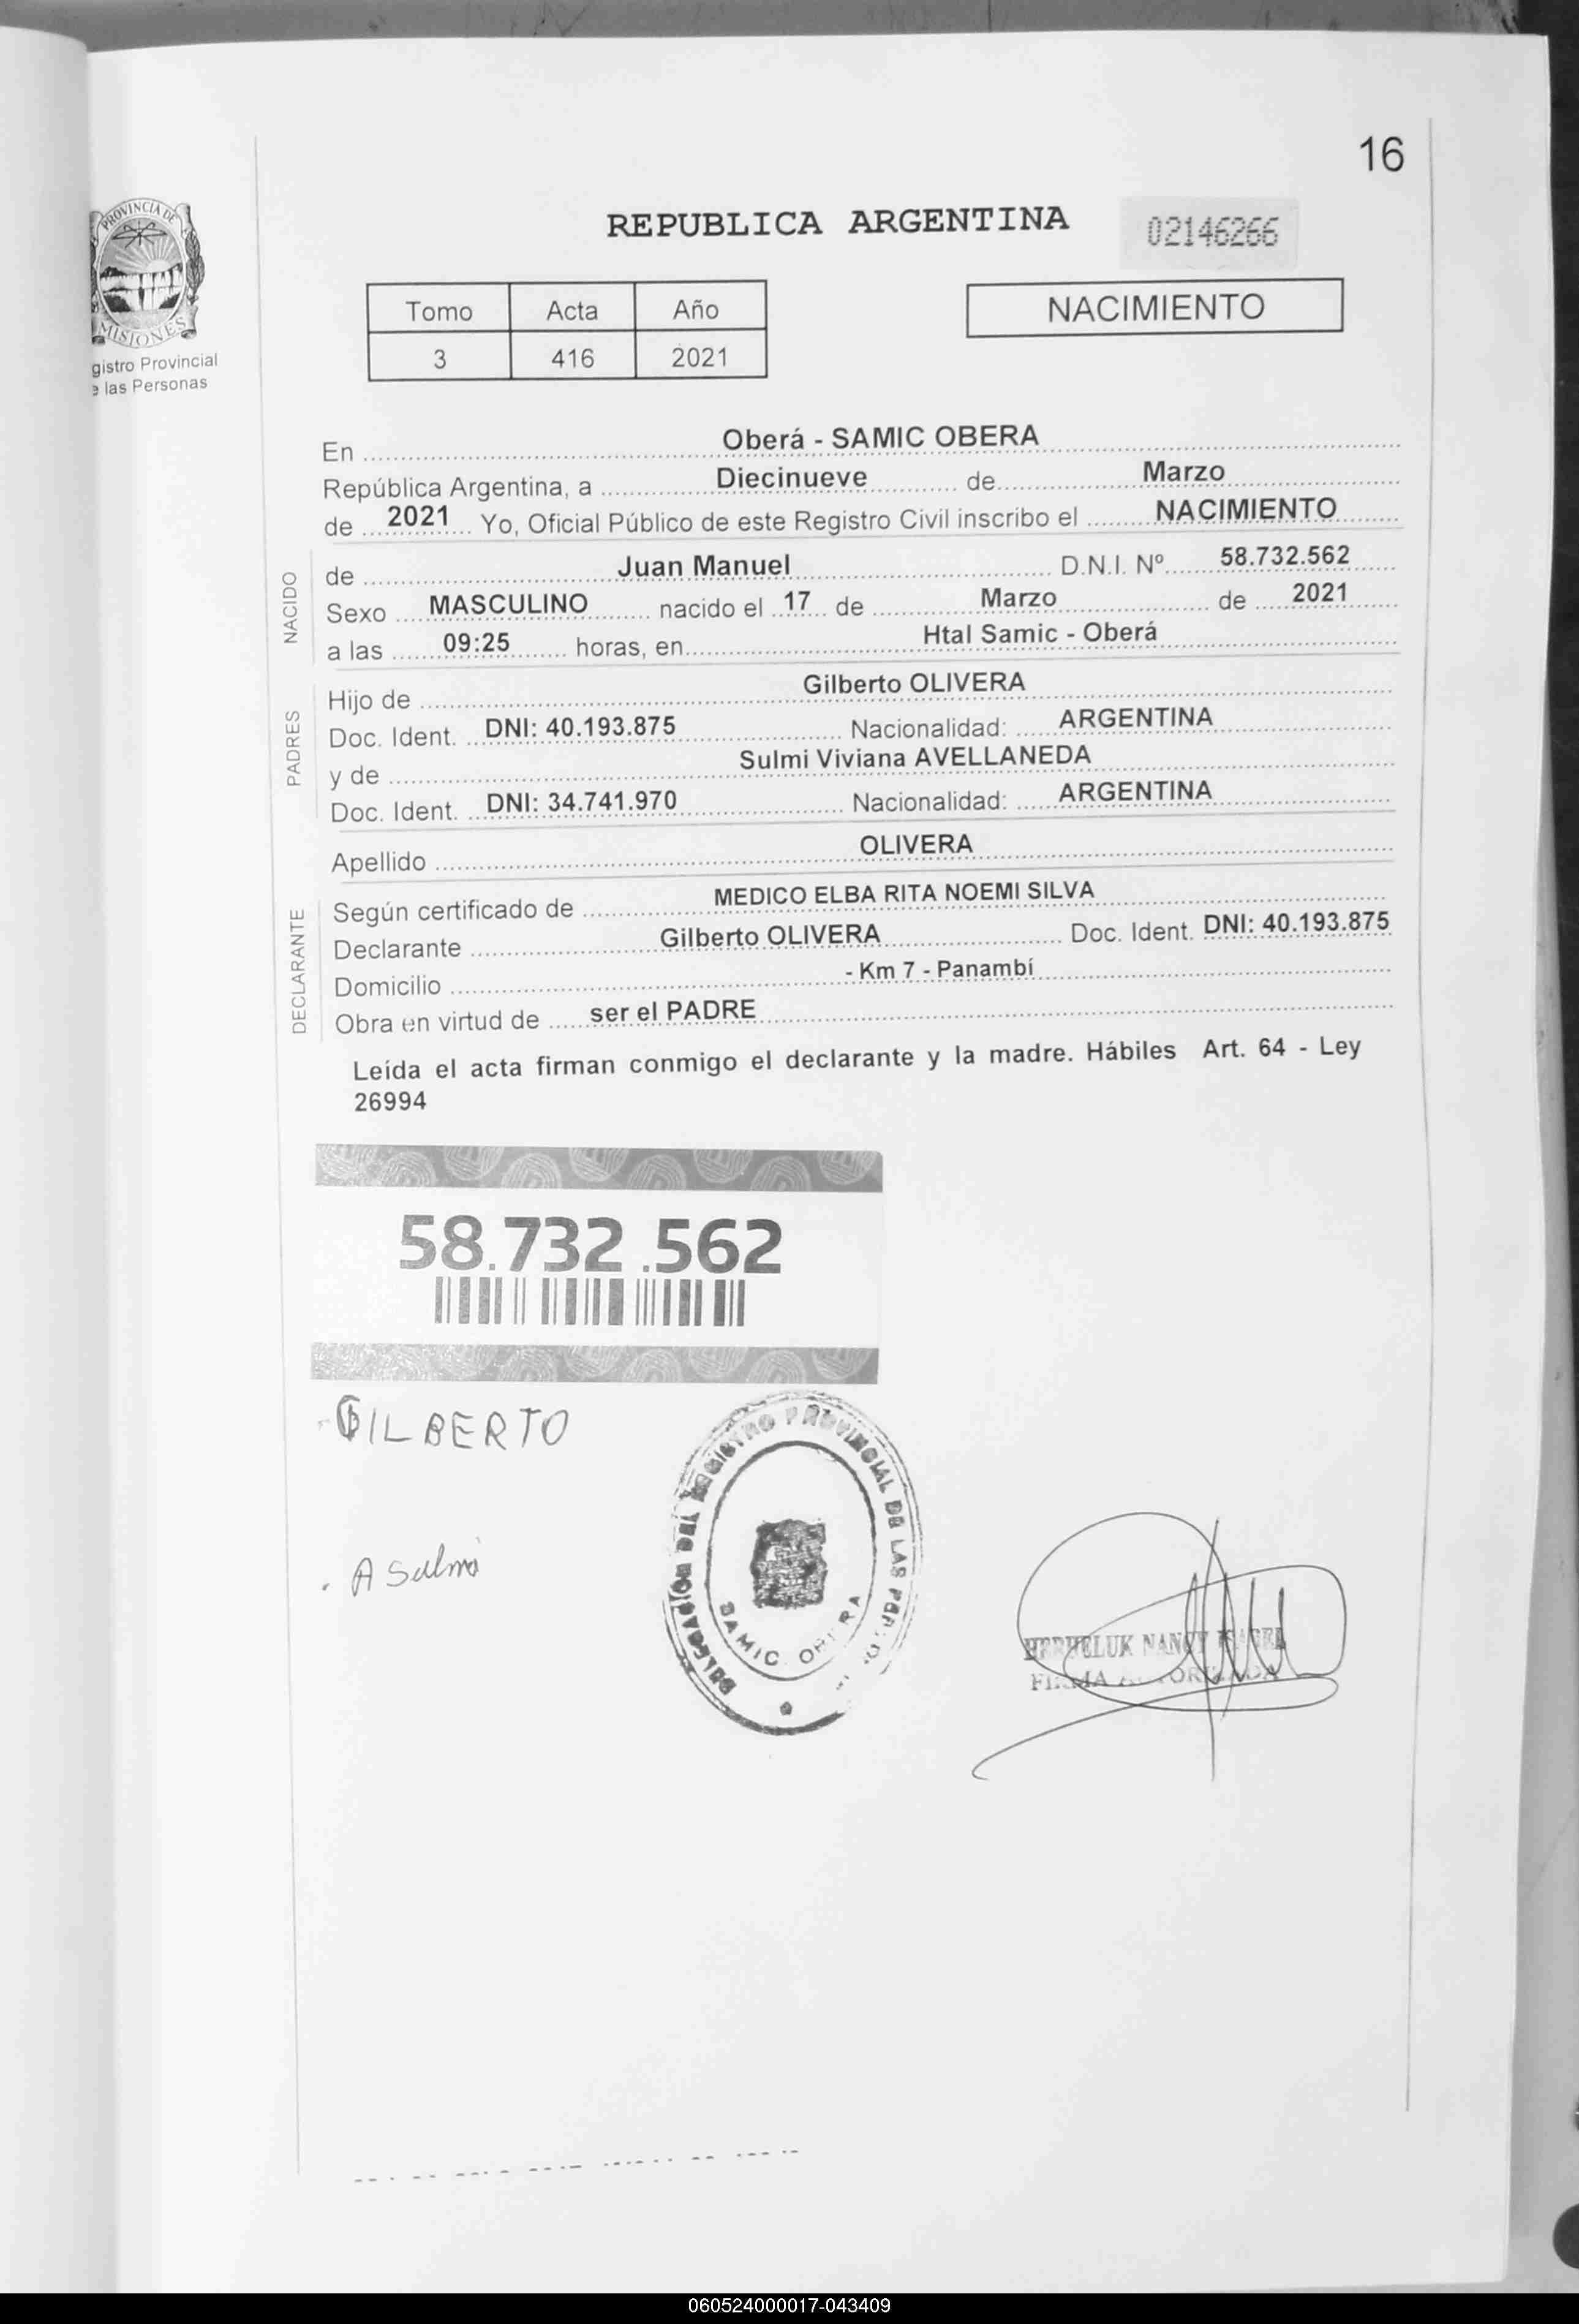 16
PROVINCIA DE
MISIONES
gistro Provincial
e las Personas
REPUBLICA ARGENTINA
02146266
Tomo Acta Año
3 416 2021
NACIMIENTO
En Oberá - SAMIC OBERA
República Argentina, a Diecinueve de Marzo
de 2021 Yo, Oficial Público de este Registro Civil inscribo el NACIMIENTO
NACIDO
de Juan Manuel D.N.I. Nº 58.732.562
Sexo MASCULINO nacido el 17 de Marzo de 2021
a las 09:25 horas, en Htal Samic - Oberá
PADRES
Hijo de Gilberto OLIVERA
Doc. Ident. DNI: 40.193.875 Nacionalidad: ARGENTINA
y de Sulmi Viviana AVELLANEDA
Doc. Ident. DNI: 34.741.970 Nacionalidad: ARGENTINA
Apellido OLIVERA
DECLARANTE
Según certificado de MEDICO ELBA RITA NOEMI SILVA
Declarante Gilberto OLIVERA Doc. Ident. DNI: 40.193.875
Domicilio - Km 7 - Panambí
Obra en virtud de ser el PADRE
Leída el acta firman conmigo el declarante y la madre. Hábiles Art. 64 - Ley
26994
58.732.562
GILBERTO
A Sulmi
DELEGACION DEL REGISTRO PROVINCIAL DE LAS
SAMIC OBERA
NANCY ISABEL
FIRMA AUTORIZADA
060524000017-043409